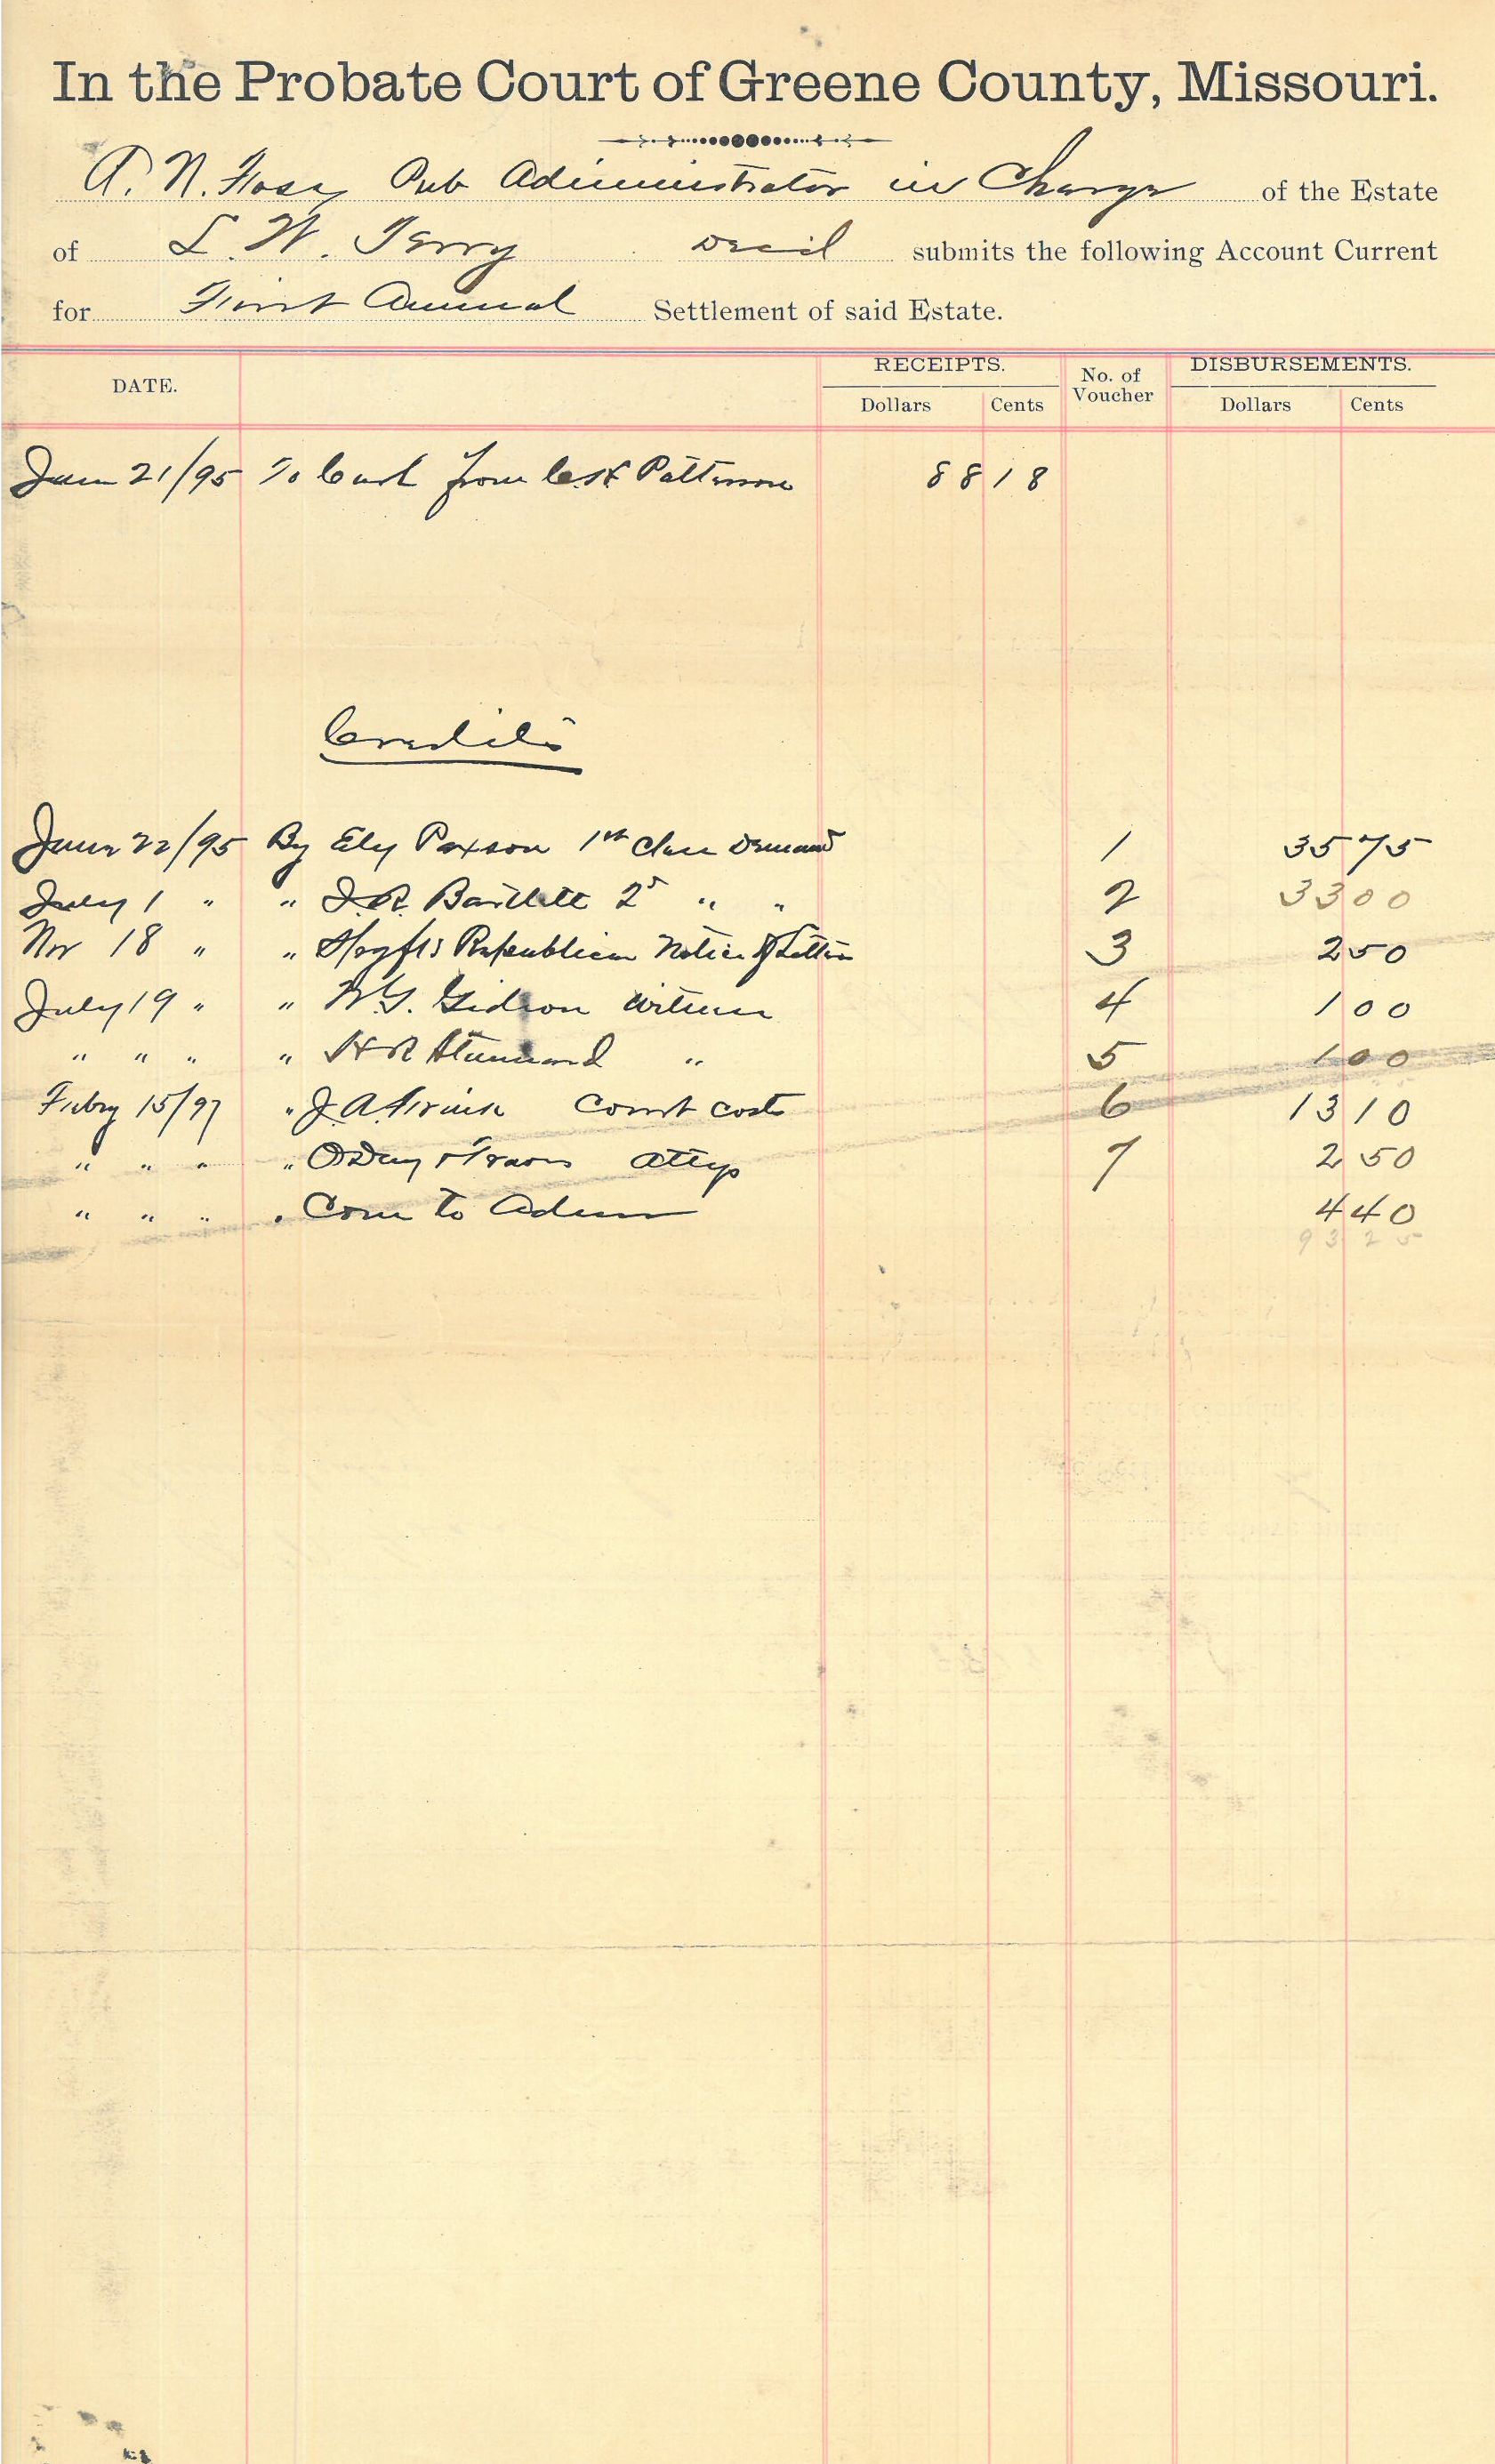 In the Probate Court of Greene County, Missouri.
A. N. Pub Administrator in Charge of the Estate
of L. W. Terry Decd submits the following Account Current
for First Annual Settlement of said Estate.
DATE. RECEIPTS. No. of Voucher DISBURSEMENTS.
Dollars Cents Dollars Cents
June 21/95 To Cash from Patterson 88 18
Credits
June 22/95 By Ely Paxson 1st Class Demand 1 35 75
July 1 " " J. R. Bartlett 2d " " 2 33 00
Nov 18 " " Republican Notice of Letters 3 2 50
July 19 " " Gideon Witness 4 1 00
" " " " H R Stannard " 5 1 00
Febry 15/97 " J. A. Court costs 6 13 10
" " " " ODay & Travers attys 7 2 50
" " " " Com to Adm 4 40
93 25